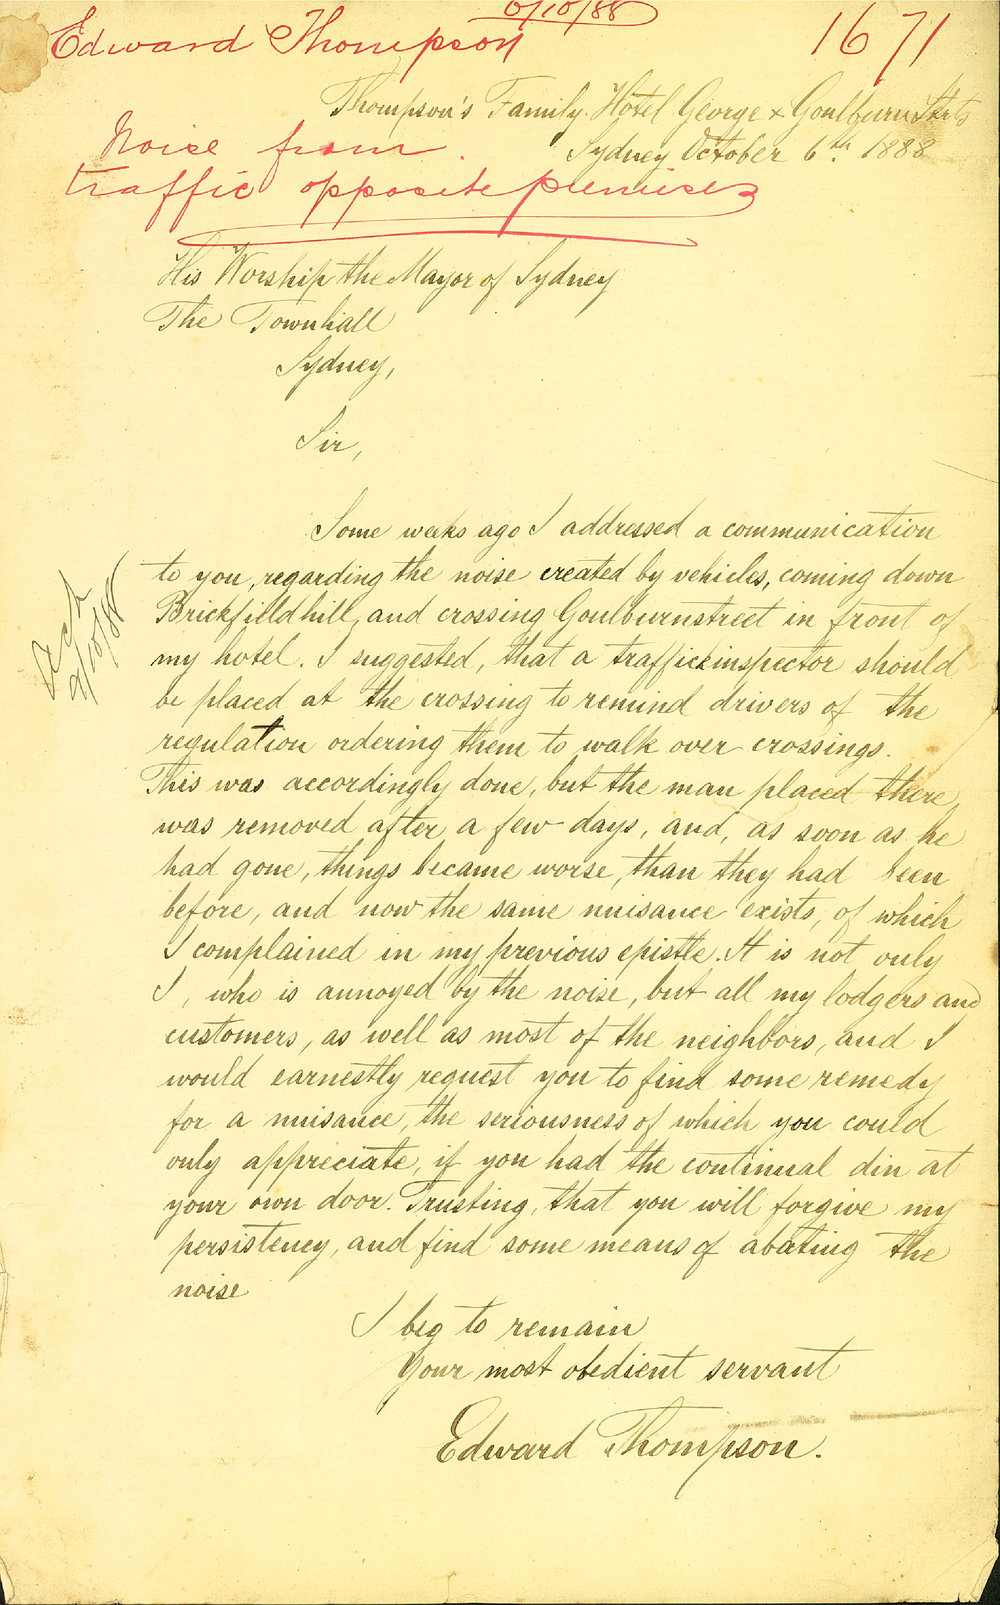 6/10/88
Edward Thompson
1671
Thompson's Family Hotel George & Goulburn Strts
Sydney October 6th 1888
Noise from
traffic opposite premises
His Worship the Mayor of Sydney
The Townhall
Sydney,
Sir,
Some weeks ago I addressed a communication
to you, regarding the noise created by vehicles, coming down
Brickfieldhill, and crossing Goulburnstreet in front of
my hotel. I suggested, that a trafficinspector should
be placed at the crossing to remind drivers of the
regulation ordering them to walk over crossings.
This was accordingly done, but the man placed there,
was removed after a few days, and, as soon as he
had gone, things became worse, than they had been
before, and now the same nuisance exists, of which
I complained in my previous epistle. It is not only
I, who is annoyed by the noise, but all my lodgers and
customers, as well as most of the neighbors, and I
would earnestly request you to find some remedy
for a nuisance, the seriousness of which you could
only appreciate, if you had the continual din at
your own door. Trusting, that you will forgive my
persistency, and find some means of abating the
noise
I beg to remain
Your most obedient servant
Edward Thompson.